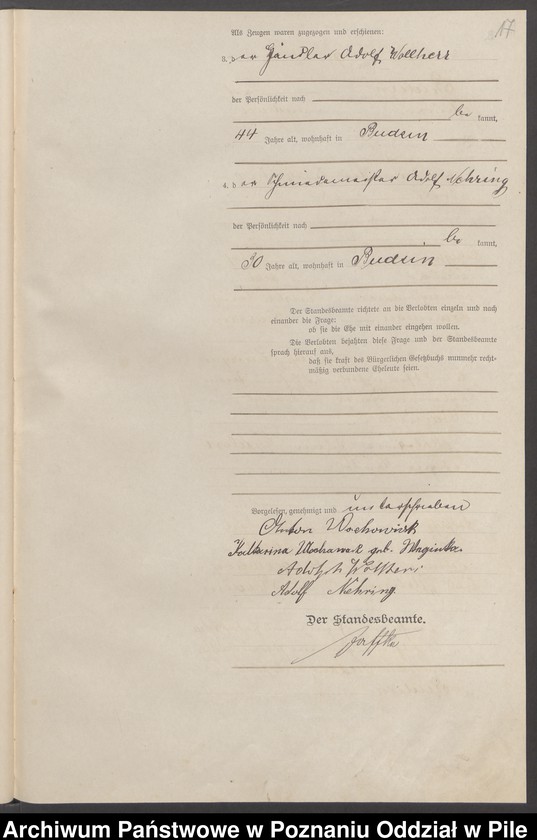 17
Als Zeugen waren zugezogen und erschienen:
3. der Händler Adolf Wollherr
der Persönlichkeit nach
be kannt,
44 Jahre alt, wohnhaft in Budsin
4. der Schmiedemeister Adolf Nehring
der Persönlichkeit nach
be kannt,
30 Jahre alt, wohnhaft in Budsin
Der Standesbeamte richtete an die Verlobten einzeln und nach
einander die Frage:
ob sie die Ehe mit einander eingehen wollen.
Die Verlobten bejahten diese Frage und der Standesbeamte
sprach hierauf aus,
daß sie kraft des Bürgerlichen Gesetzbuchs nunmehr recht-
mäßig verbundene Eheleute seien.
Vorgelesen, genehmigt und unterschrieben
Anton Wochowiak
Katharina Wochowiak geb.
Adolph Wollherr
Adolf Nehring
Der Standesbeamte.
Archiwum Państwowe w Poznaniu Oddział w Pile